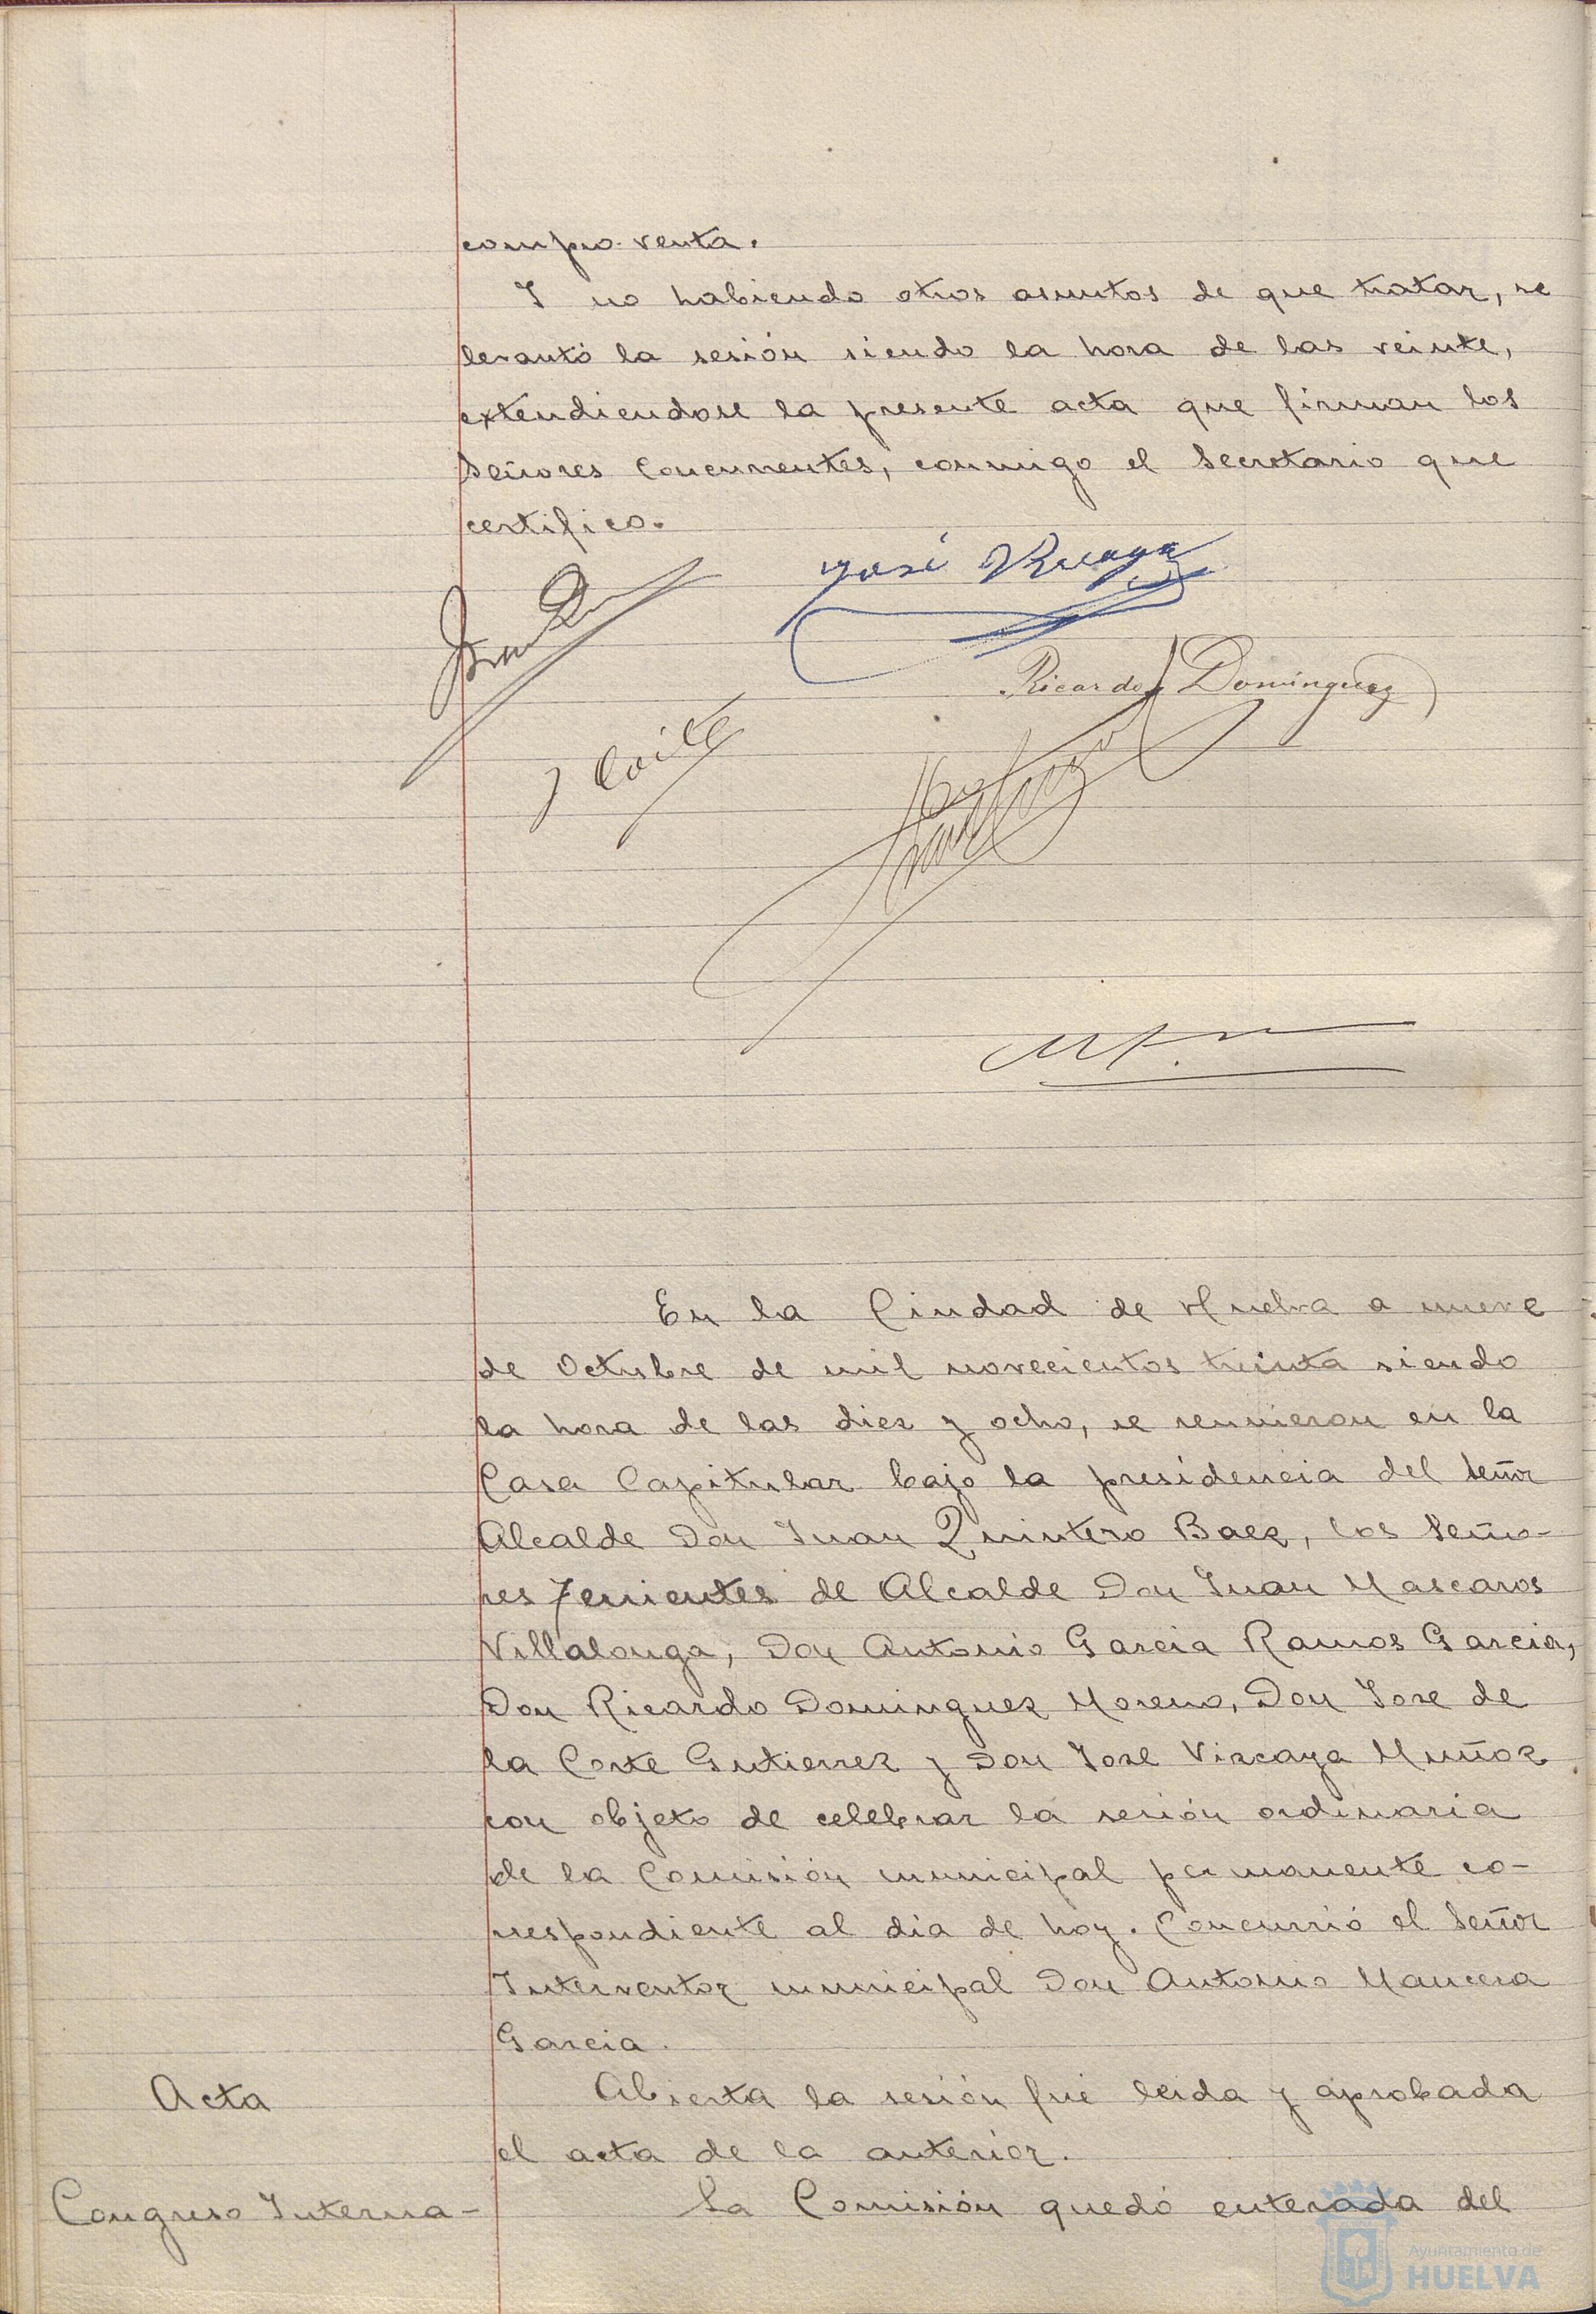 compro-venta.
Y no habiendo otros asuntos de que tratar, se
levantó la sesión siendo la hora de las veinte,
extendiendose la presente acta que firman los
Señores Concurrentes, conmigo el Secretario que
certifico.
José Vizcaya
Ricardo Dominguez
J Corte
En la Ciudad de Huelva a nueve
de Octubre de mil novecientos treinta siendo
la hora de las diez y ocho, se reunieron en la
Casa Capitular bajo la presidencia del Señor
Alcalde Don Juan Quintero Baez, los Seño-
res Tenientes de Alcalde Don Juan Mascaros
Villalonga, Don Antonio Garcia Ramos Garcia,
Don Ricardo Dominguez Moreno, Don Jose de
la Corte Gutierrez y Don Jose Vizcaya Muñoz
con objeto de celebrar la sesión ordinaria
de la Comisión municipal permanente co-
rrespondiente al dia de hoy. Concurrió el Señor
Interventor municipal Don Antonio Mancera
Garcia.
Acta
Abierta la sesión fué leida y aprobada
el acta de la anterior.
Congreso Interna-
La Comisión quedó enterada del
Ayuntamiento de
HUELVA